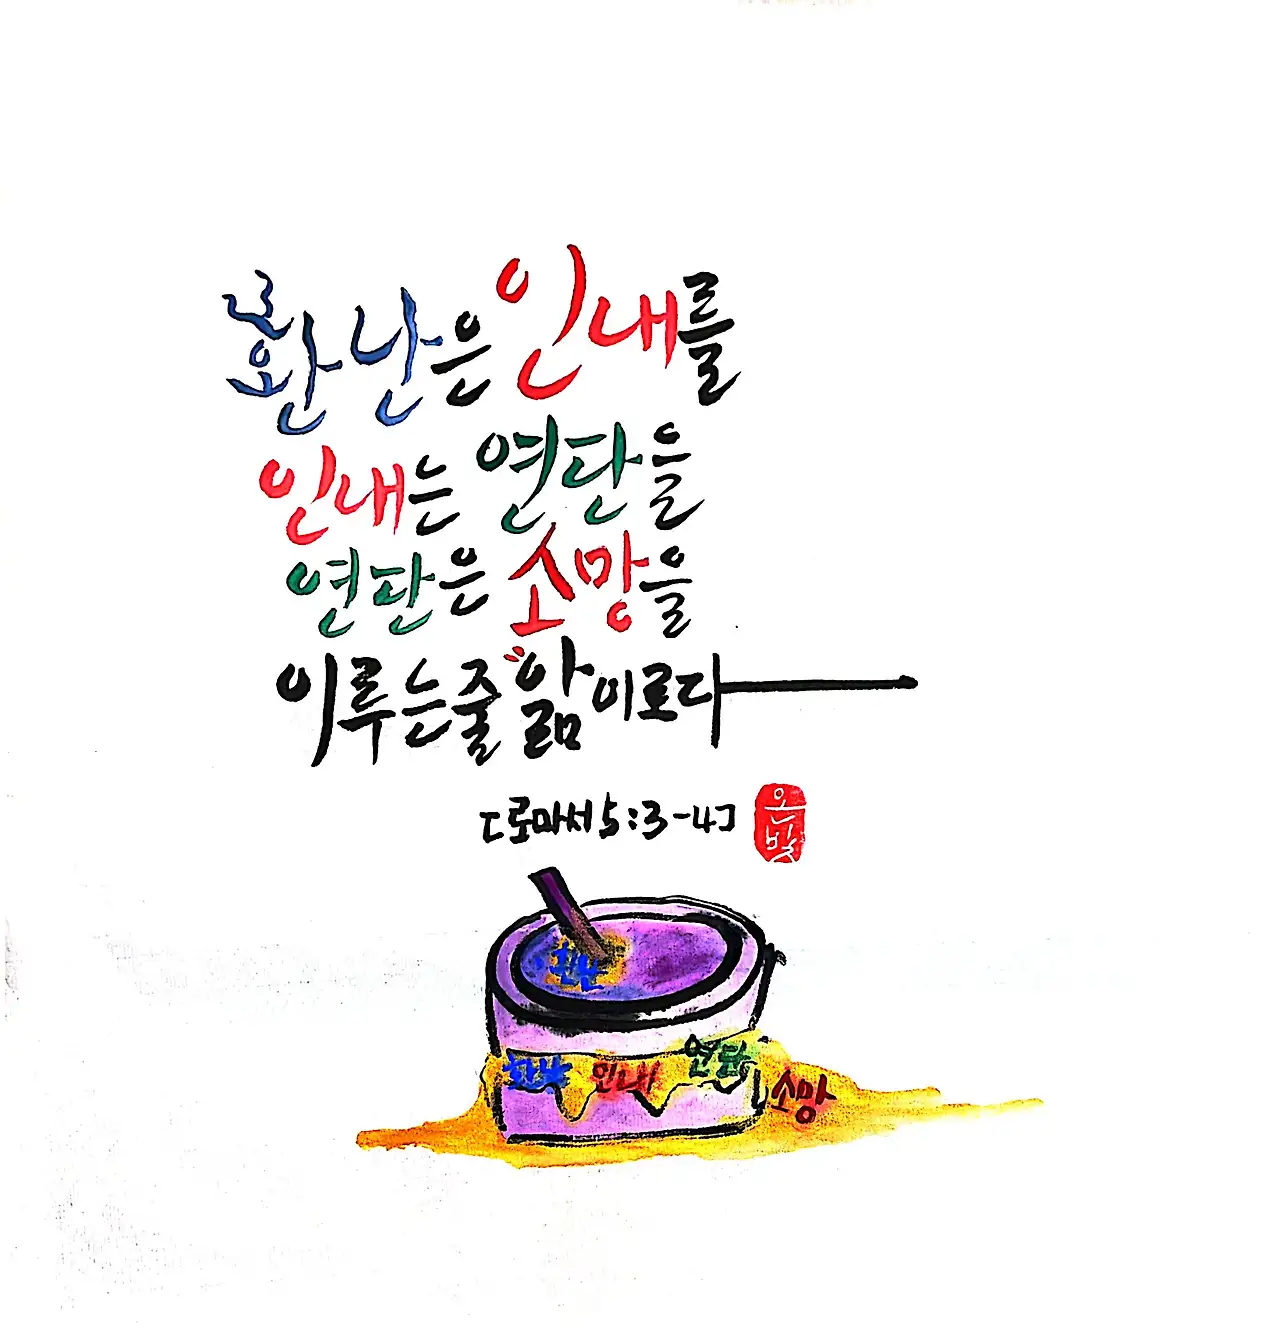 환난은 인내를
인내는 연단을
연단은 소망을
이루는 줄 "앎이로다
[로마서 5:3-4]
환난
환난 인내 연단
소망